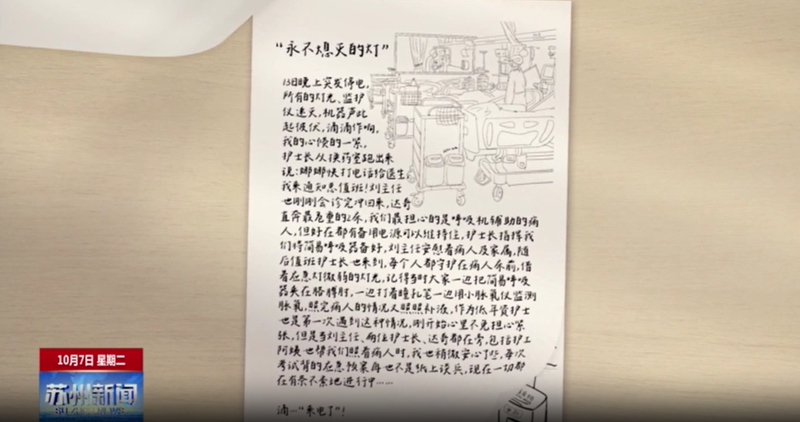 “永不熄灭的灯”
13日晚上突发停电,
所有的灯光、监护
仪速灭,机器声此
起彼伏,滴滴作响,
我的心倏的一紧,
护士长从换药室跑出来
说:娜娜快打电话给医生,
我来通知总值班!刘主任
也刚刚会诊完冲回来,达奇
直奔最危重的2床,我们最担心的是呼吸机辅助的病
人,但好在都有备用电源可以维持住,护士长指挥我
们将简易呼吸器备好,刘主任安慰着病人及家属,随
后值班护士长也来到,每个人都守护在病人床前,借
着应急灯微弱的灯光,记得当时大家一边把简易呼吸
器夹在胳膊肘,一边打着瞳孔笔一边用小脉氧仪监测
脉氧,照完病人的情况又照照补液,作为低年资护士
也是第一次遇到这种情况,刚开始心里不免担心紧
张,但是当刘主任、两位护士长、达奇都在旁,包括护工
阿姨也帮我们照着病人时,我也稍微安心了些,每次
考试背的应急预案再也不是纸上谈兵,现在一切都
在有条不紊地进行中……
滴…“来电了”!
10月7日 星期二
苏州新闻
SUZHOU NEWS